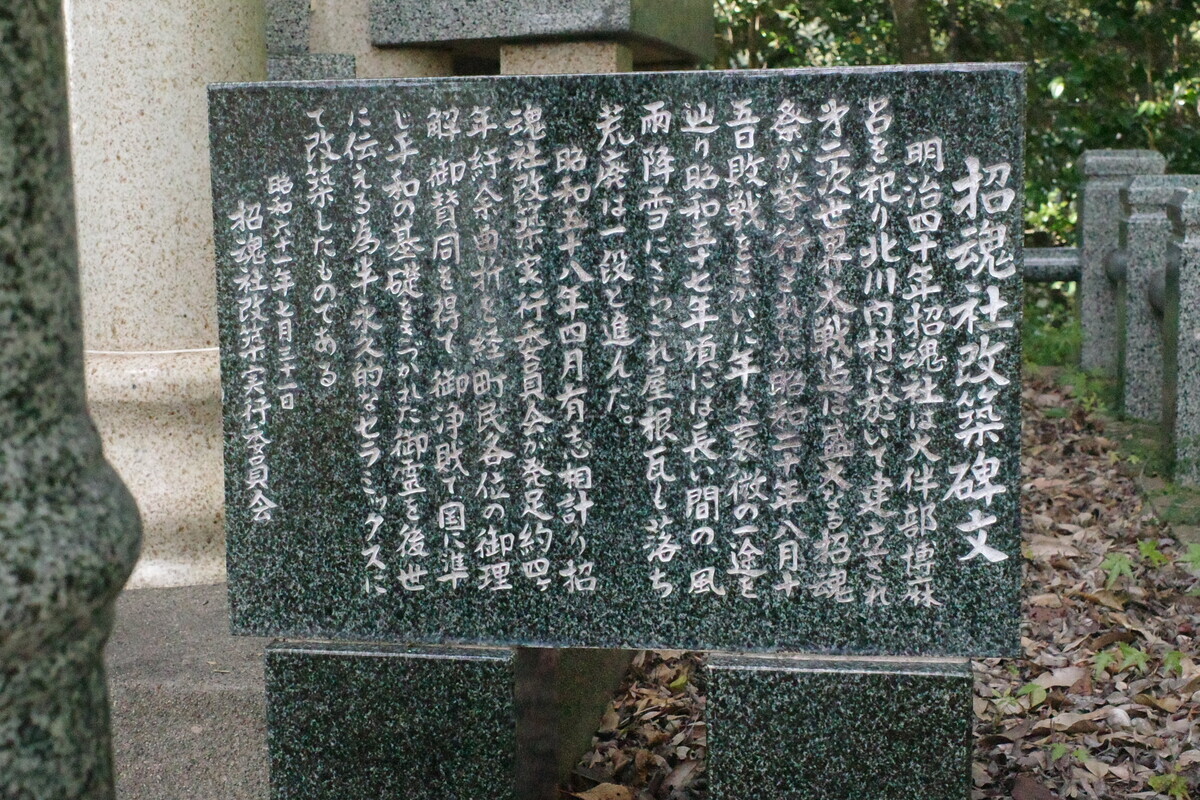 招魂社改築碑文
明治四十年招魂社は大伴部博麻
呂を祀り北川内村に於いて建立され
才二次世界大戦迄は盛大なる招魂
祭が挙行されたが昭和二十年八月十
五日敗戦とまがいに年々衰微の一途を
辿り昭和五十七年頃には長い間の風
雨降雪にさらされ屋根瓦も落ち
荒廃は一段と進んだ。
昭和五十八年四月有志相計り招
魂社改築実行委員会が発足約四ヶ
年紆余曲折を経町民各位の御理
解御賛同を得て御浄財で国に準
じ平和の基礎をきづかれた御霊を後世
に伝える為半永久的なセラミックスに
て改築したものである
昭和六十一年七月三十一日
招魂社改築実行委員会